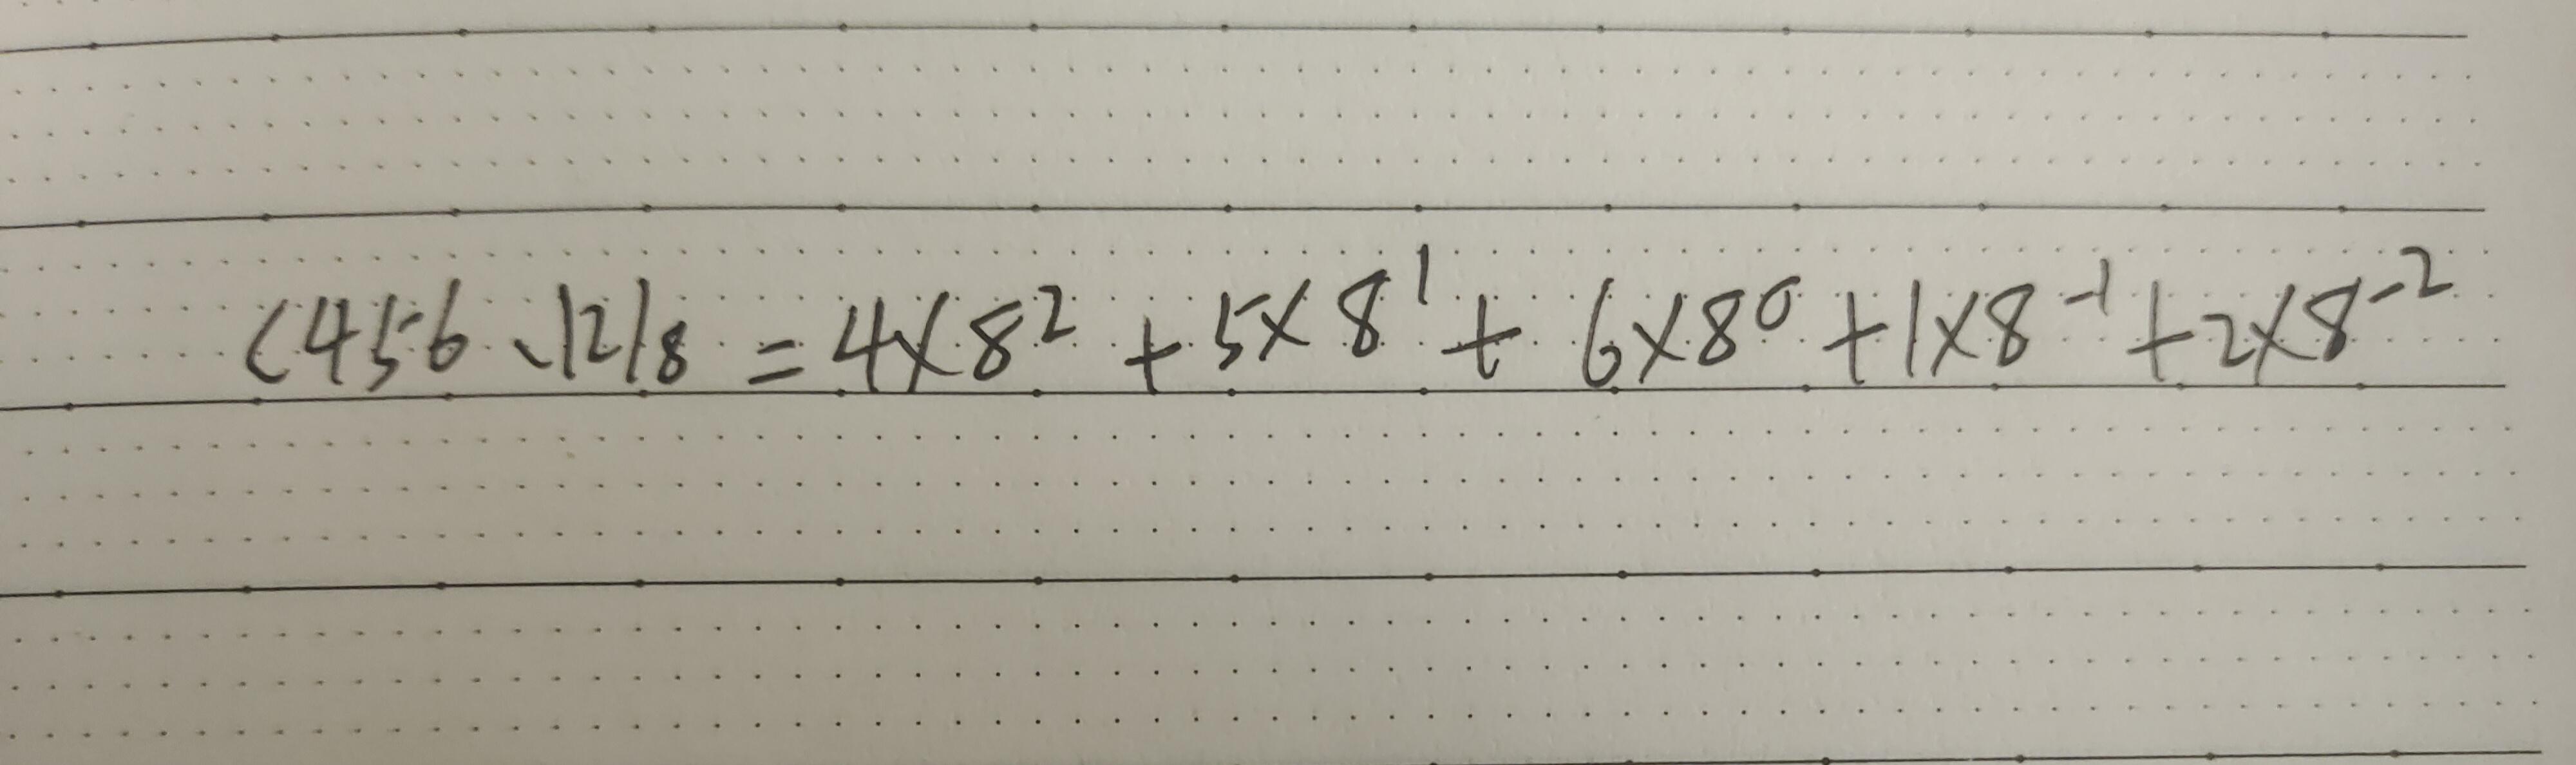 (456.12)₈ = 4×8² + 5×8¹ + 6×8⁰ + 1×8⁻¹ + 2×8⁻²